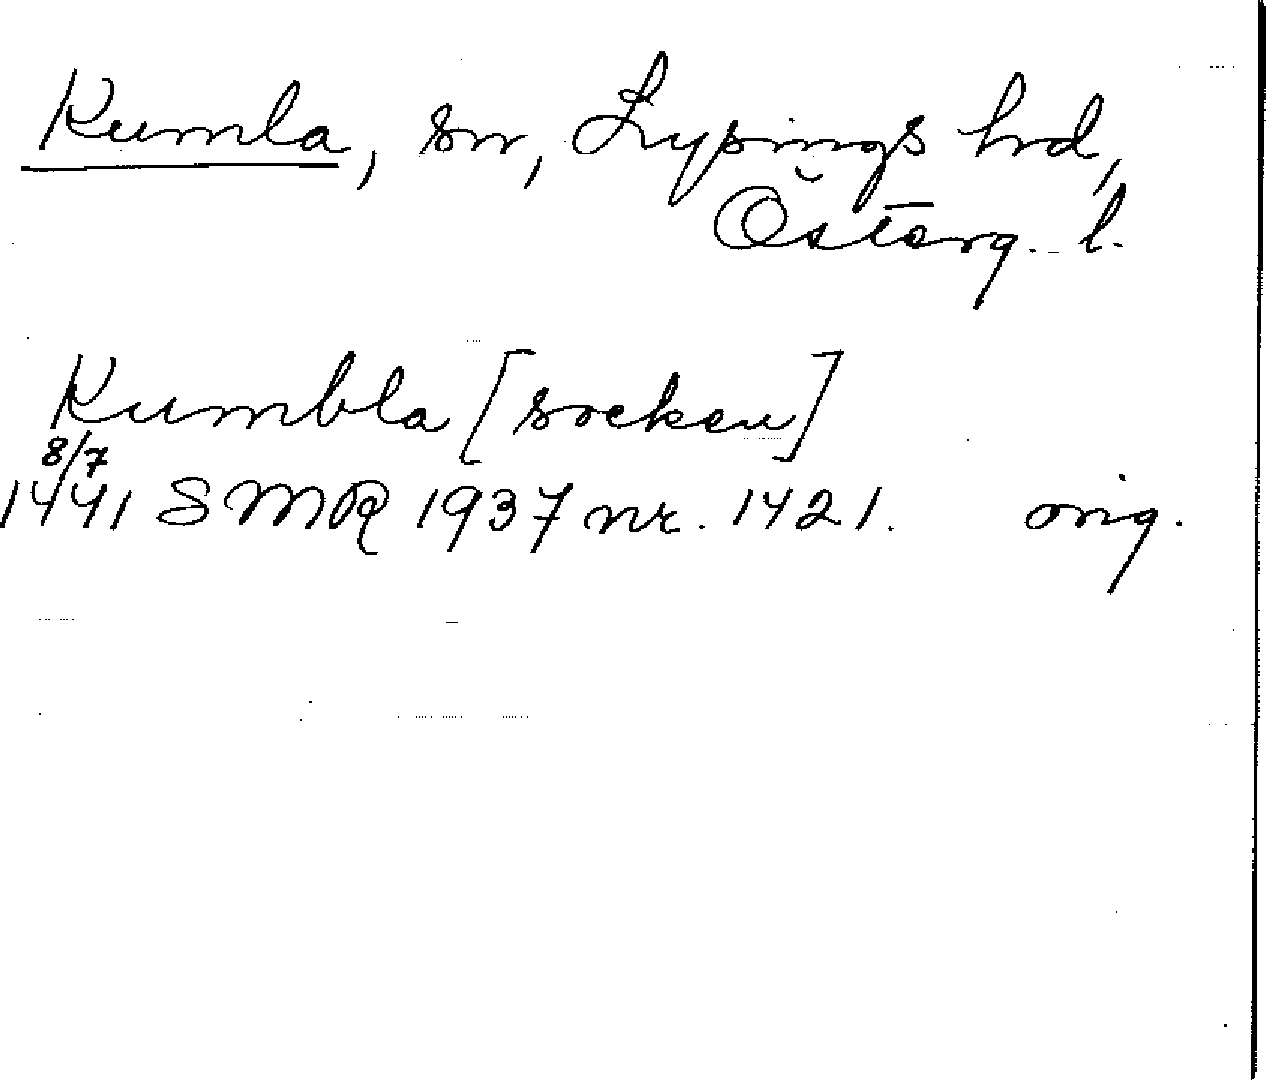 Kumla, sn, Lysings hrd,
Österg. l.
Kumbla [socken]
8/7
1441 SMR 1937 nr. 1421. orig.